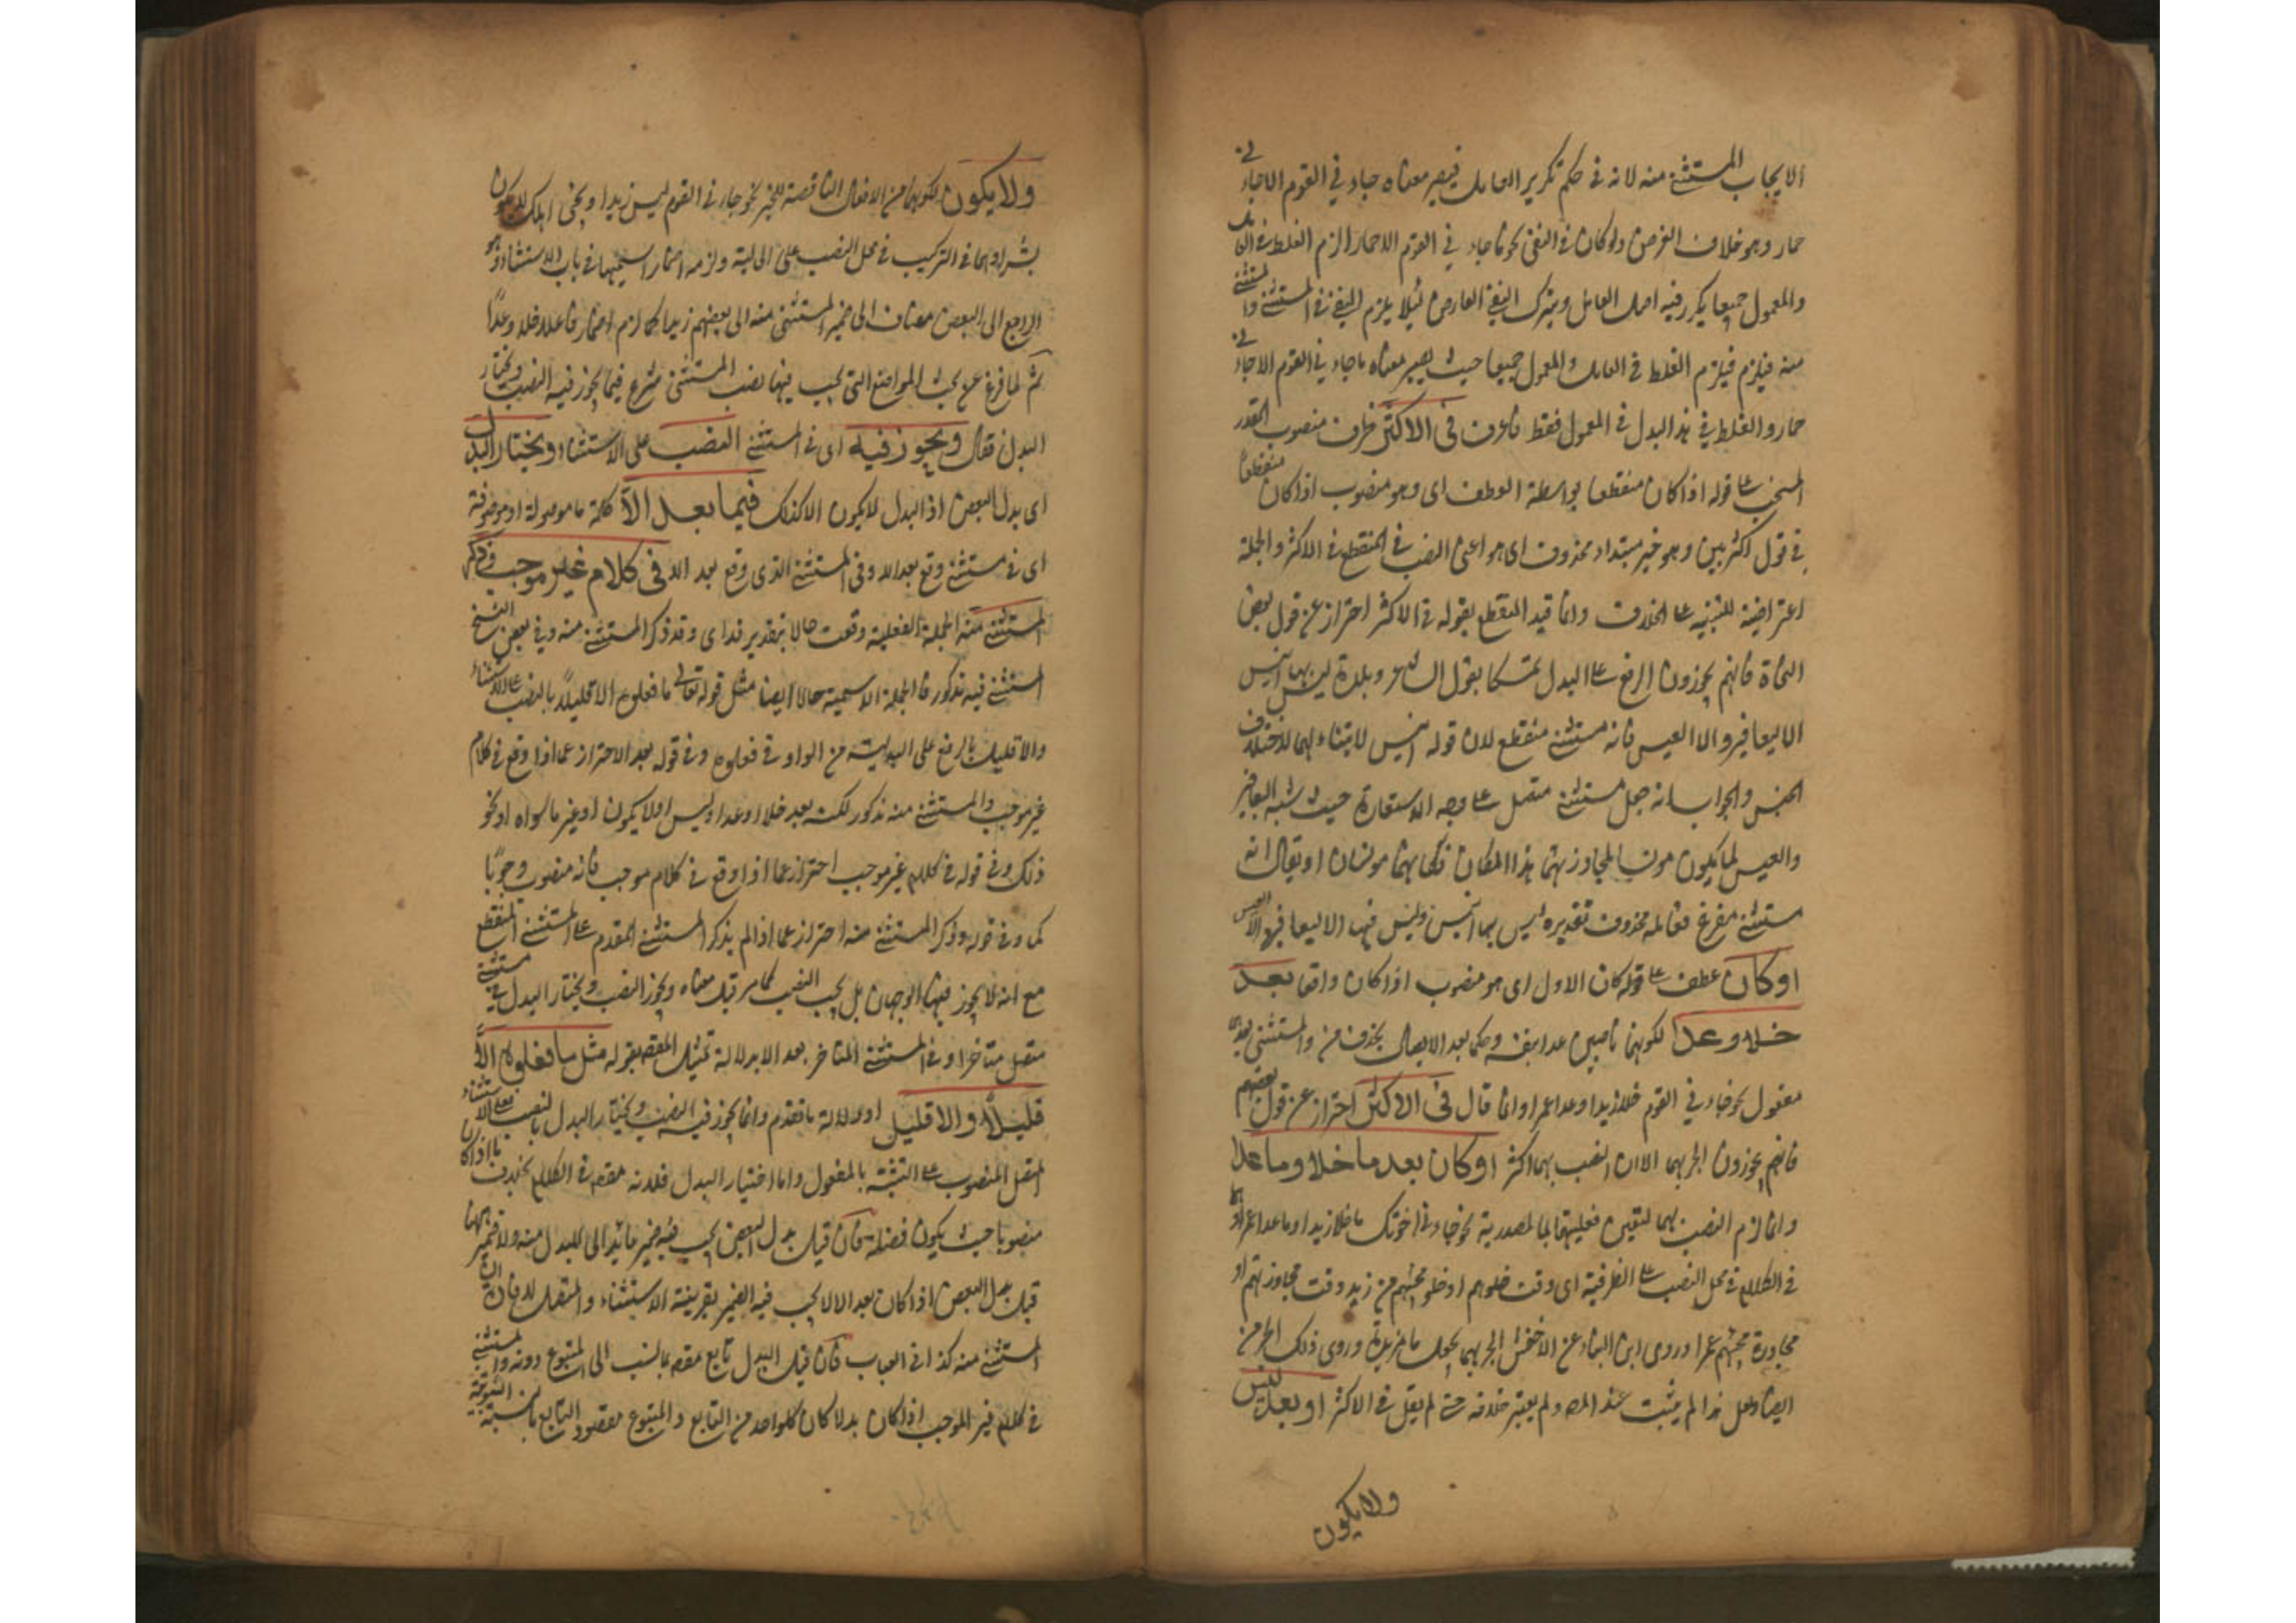 الايجاب المستثنى منه لانه في حكم تكرير العامل فيصير معناه جاء في القوم الا جاءني
حمار وهو خلاف الغرض ولو كان في النفي نحو ما جاءني القوم الا حمار الزم الغلط في العامل
والمعمول جميعا يكرر فيه اصل العامل ويترك النفي العارض لئلا يلزم النفي في المستثنى والمستثنى
منه فيلزم فيلزم الغلط في العامل والمعمول جميعا حيث يصير معناه ما جاء في القوم الا جاءني
حمار والغلط في بدل المعمول فقط فاعرف في الاكثر ظرف منصوب المقدر
على قوله اذا كان منقطعا بواسطة العطف اى وهو منصوب اذا كان منقطعا
في قول اكثرهم وهو خبر مبتداء محذوف اى هو اعنى النصب في المنقطع في الاكثر والجملة
اعتراضية للتنبيه على الخلاف وانما قيد المنقطع بقوله في الاكثر احتراز عن قول بعض
النحاة فانهم يجوزون الرفع على البدل تمسكا بقول الشاعر وبلدة ليس بها انيس
الا اليعافير والا العيس فانه مستثنى منقطع لان قوله انيس لا يتناولهما لاختلاف
الجنس والجواب انه جعل مستثنى متصل على وجه الاستعارة حيث شبه اليعافير
والعيس لما يكون مونسا لمجاوزتهما هذا المكان فكانهما مونسان او يقال انه
مستثنى مفرغ فعامله محذوف تقديره ليس بها انيس وليس فيها الا اليعافير والا العيس
او كان عطف على قوله كان الاول اى هو منصوب اذا كان واقعا بعد
خلا وعدا لكونهما ناصبين عدا بنفسه وحكما بعد الايصال بحذف من والمستثنى بعدهما
مفعول نحو جاءني القوم خلا زيدا وعدا عمرا وانما قال في الاكثر احتراز عن قول بعضهم
فانهم يجوزون الجر بهما الا ان النصب بهما اكثر او كان بعد ما خلا وما عدا
وانما لزم النصب بهما لتعين فعليتهما بما المصدرية نحو جاءني اخوتك ما خلا زيدا وما عدا عمرا وهما
في الكلام في محل النصب على الظرفية اى وقت خلوهم او خلو مجيئهم من زيد وقت مجاوزتهم او
مجاوزة مجيئهم عمرا وروى ابن البناء عن الاخفش الجر بهما بجعل ما مزيدة وروى ذلك الجرمى
ايضا ولعل هذا لم يثبت عند المص ولم يعتبر خلافه حتى لم يقل في الاكثر او بعد ليس
ولا يكون
ولا يكون لكونهما من الافعال الناقصة للخبر نحو جاءني القوم ليس زيدا ويجئ اهلك لا يكون
بشرا وهما في التركيب في محل النصب على الحالية ولزمه اضمار اسميهما في باب الاستثناء وهو
الراجع الى البعض مضاف الى ضمير المستثنى منه اى بعضهم زيدا كما لزم اضمار فاعل خلا وعدا
ثم لما فرغ عن بحث المواضع التى يجب فيها نصب المستثنى شرع فيما يجوز فيه النصب ويختار
البدل فقال ويجوز فيه اى في المستثنى النصب على الاستثناء ويختار البدل
اى بدل البعض اذ البدل لا يكون الا كذلك فيما بعد الا كلمة ما موصولة او موصوفة
اى في مستثنى وقع بعد الا وفي المستثنى الذى وقع بعد الا في كلام غير موجب وذكر
المستثنى منه الجملة الفعلية وقعت حالا بتقدير قد اى وقد ذكر المستثنى منه وفي بعض النسخ
المستثنى فيه مذكور فالجملة الاسمية حالا ايضا مثل قوله تعالى ما فعلوه الا قليلا بالنصب على الاستثناء
والا قليل بالرفع على البدلية من الواو في فعلوه وفي قوله بعد الا احتراز عما اذا وقع في كلام
غير موجب والمستثنى منه مذكور لكنه بعد خلا او عدا وليس او لا يكون او غير ما سواه او نحو
ذلك وفي قوله في كلام غير موجب احتراز عما اذا وقع في كلام موجب فانه منصوب وجوبا
كما وفي قوله وذكر المستثنى منه احتراز عما اذا لم يذكر المستثنى المقدم على المستثنى المنقطع
مع انه لا يجوز فيها الوجهان بل يجب النصب كما مر قبل معناه ويجوز النصب ويختار البدل في مستثنى
متصل متأخر او في المستثنى المتأخر بعد الا بدلالة تمثيل المص بقوله مثل ما فعلوه الا
قليلا والا قليل او لدلالة ما تقدم وانما يجوز فيه النصب ويختار البدل لنصب على الاستثناء
المتصل المنصوب على التشبيه بالمفعول واما اختيار البدل فلانه مقصود في الكلام بخلاف ما اذا كان
منصوبا حيث يكون فضلة فان قيل بدل البعض يجب فيه ضمير عائد الى المبدل منه ولا ضمير ههنا
قيل بدل البعض اذا كان بعد الا لا يجب فيه الضمير بقرينة الاستثناء والمتصل لافادته ان
المستثنى منه كذا في العباب فان قيل البدل تابع مقصود بالنسب الى المتبوع دونه والمستثنى
في كلام غير الموجب اذا كان بدلا كان كل واحد من التابع والمتبوع مقصود التابع بالنسبة الثبوتية